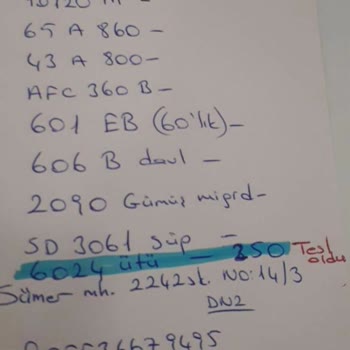 65 A 860 –
43 A 800 –
AFC 360 B –
601 EB (60'lık) –
606 B davl –
2090 Gümüş migrd –
SD 3061 Süp –
6024 ütü – 250 Test oldu
Sümer mh. 2242 sk. NO: 14/3
DN2